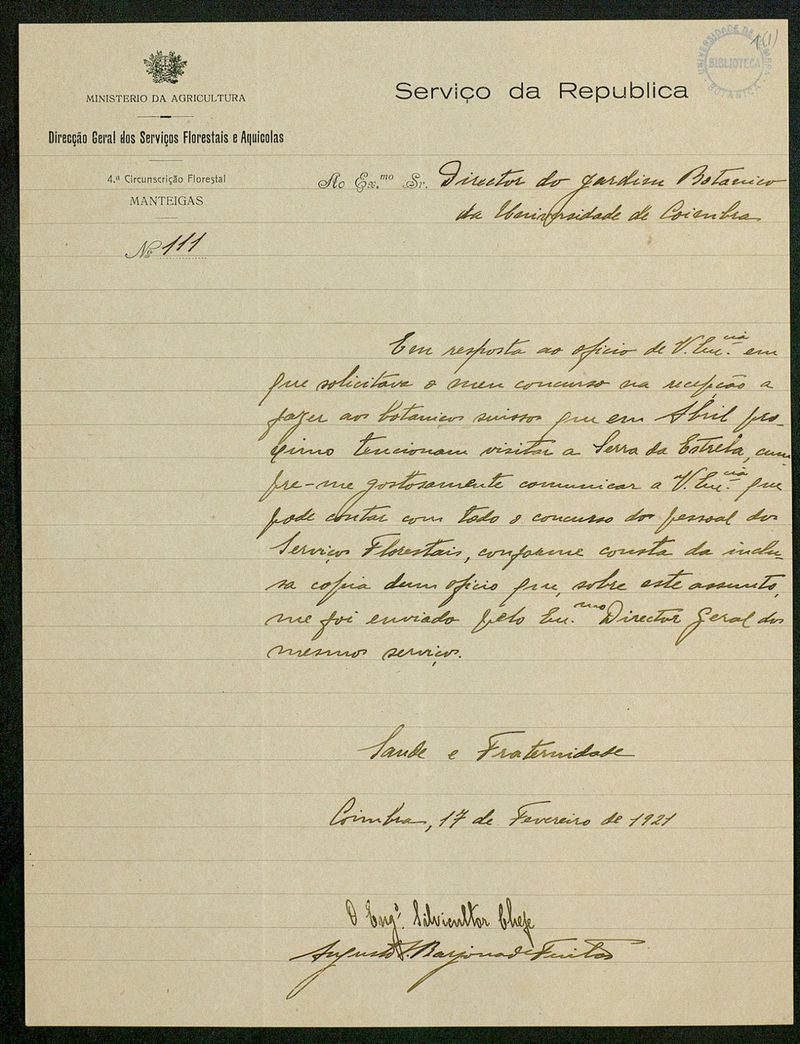 1(1)
UNIVERSIDADE DE COIMBRA
BIBLIOTECA
BOTANICA
MINISTERIO DA AGRICULTURA
Direcção Geral dos Serviços Florestais e Aquícolas
4.ª Circunscrição Florestal
MANTEIGAS
Nº 111
Serviço da Republica
Ao Ex.mo Sr. Director do Jardim Botanico
da Universidade de Coimbra
Em resposta ao oficio de V. Exc.cia em
que solicitava o meu concurso na recepção a
fazer aos botanicos suissos que em Abril pro-
ximo tencionam visitar a Serra da Estrela, cum
pre-me gostosamente comunicar a V. Exc.cia que
pode contar com todo o concurso do pessoal dos
Serviços Florestais, conforme consta da inclu-
sa copia dum oficio que, sobre este assunto,
me foi enviado pelo Ex.mo Director Geral dos
mesmos serviços.
Saude e Fraternidade
Coimbra, 17 de Fevereiro de 1921
O Eng.º Silvicultor Chefe
Augusto Barjona de Freitas